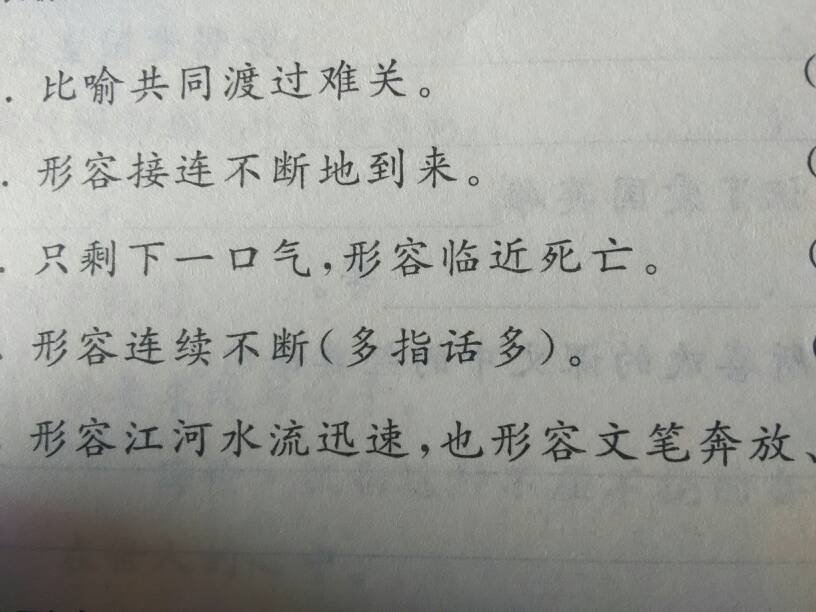 . 比喻共同渡过难关。 (
. 形容接连不断地到来。 (
. 只剩下一口气,形容临近死亡。 (
. 形容连续不断(多指话多)。 (
. 形容江河水流迅速,也形容文笔奔放、